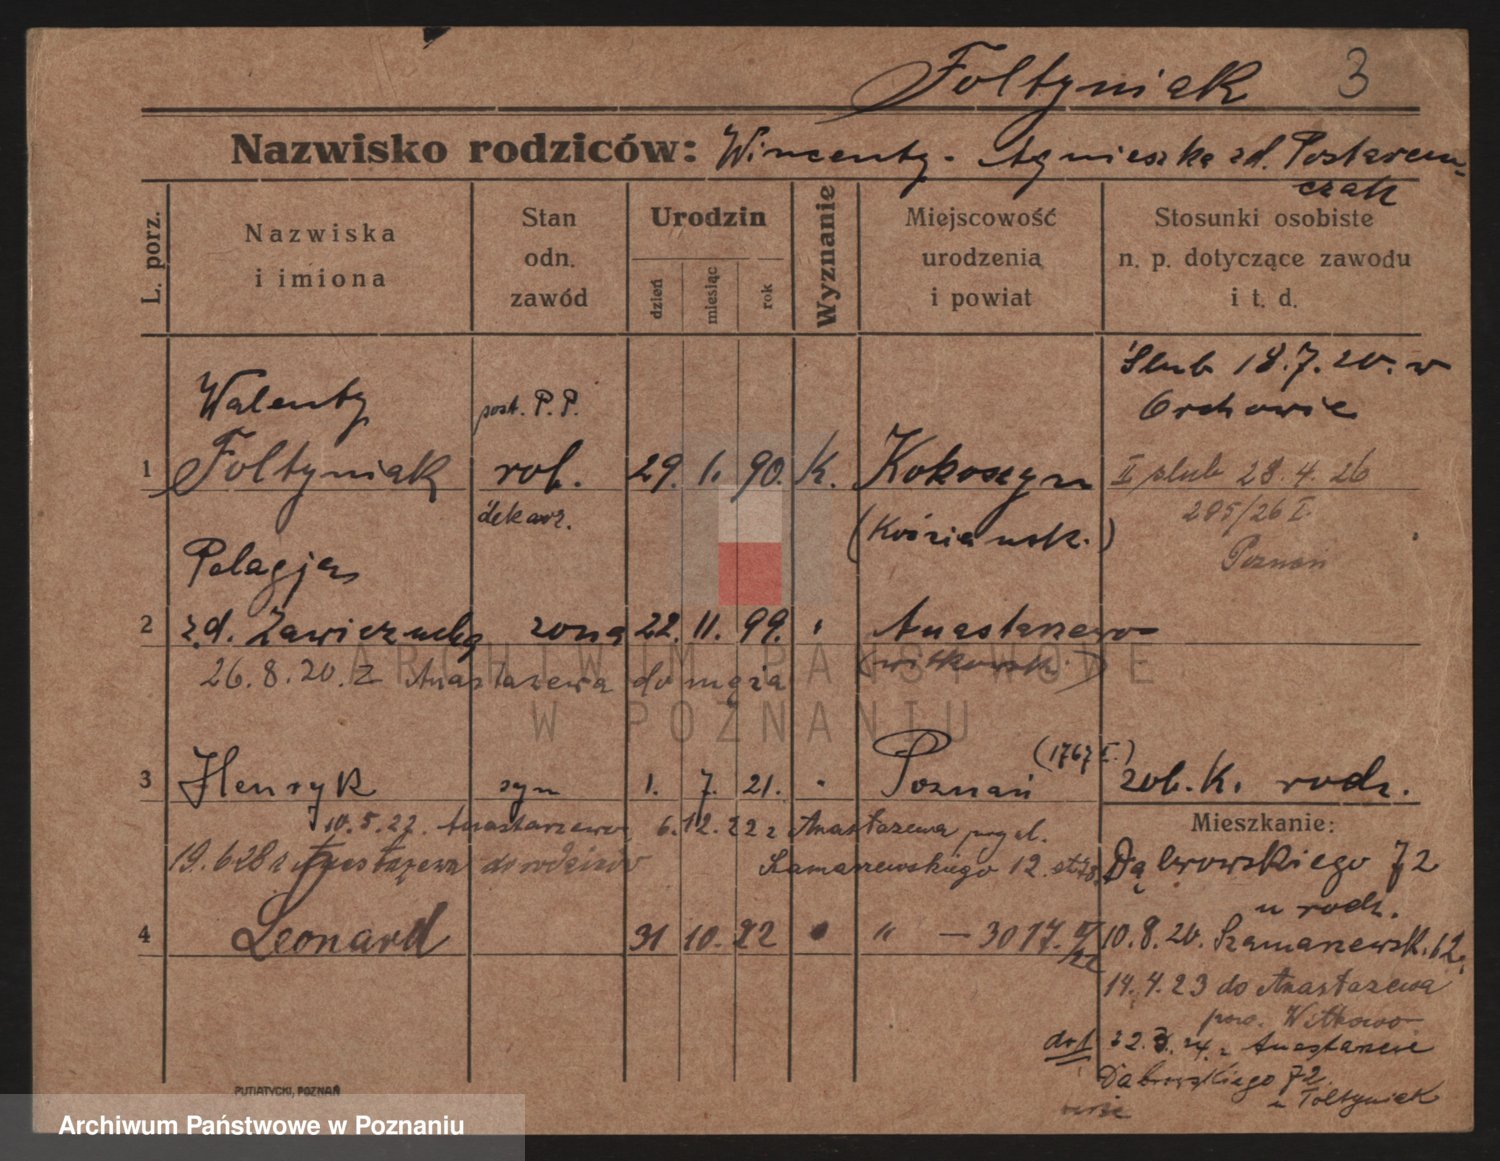 Foltyniak 3
Nazwisko rodziców: Wincenty - Agnieszka zd. Postarem-
czak
L. porz.
Nazwiska
i imiona
Stan
odn.
zawód
Urodzin
dzień
miesiąc
rok
Wyznanie
Miejscowość
urodzenia
i powiat
Stosunki osobiste
n. p. dotyczące zawodu
i t. d.
Ślub 18.7.20. w
Orchowie
Walenty
post. P.P.
1 Foltyniak rob. 29. 1. 90. K. Kokoszyn II ślub 28.4.26
dekarz. (Kościańsk.) 295/26 I.
Poznań
Pelagja
2 z.d. Zawierucha żona 22. 11. 99. " Anastazewo
26.8.20. Z Anastazewa do męża (witkowsk.)
(1767 I.)
3 Henryk syn 1. 7. 21. " Poznań zob. K. rodz.
Mieszkanie:
10.5.22. Anastazewo 6.12.22 z Anastazewa
19.6 28 z Anastazewa do rodziców Szamarzewskiego 12.
Dąbrowskiego 72
u rodz.
4 Leonard 31 10. 22 " " — 3017. IV/22
10.8.20. Szamarzewsk. 12.
14.4.23 do Anastazewa
pow. Witkowo
22.3.24. z Anastazewa
Dąbrowskiego 72.
u Foltyniak
PUTIATYCKI, POZNAŃ
ARCHIWUM PAŃSTWOWE
W POZNANIU
Archiwum Państwowe w Poznaniu